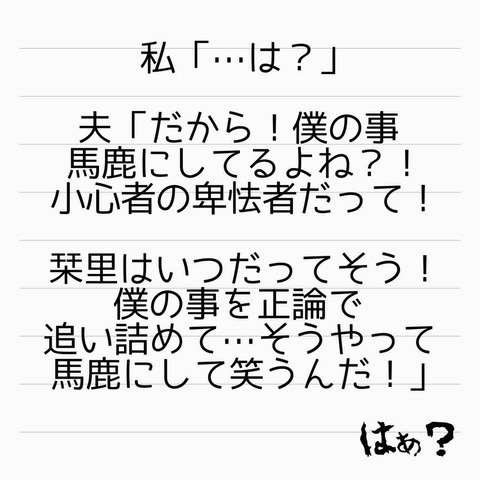 私「…は？」
夫「だから！僕の事
馬鹿にしてるよね？！
小心者の卑怯者だって！
栞里はいつだってそう！
僕の事を正論で
追い詰めて…そうやって
馬鹿にして笑うんだ！」
はぁ？